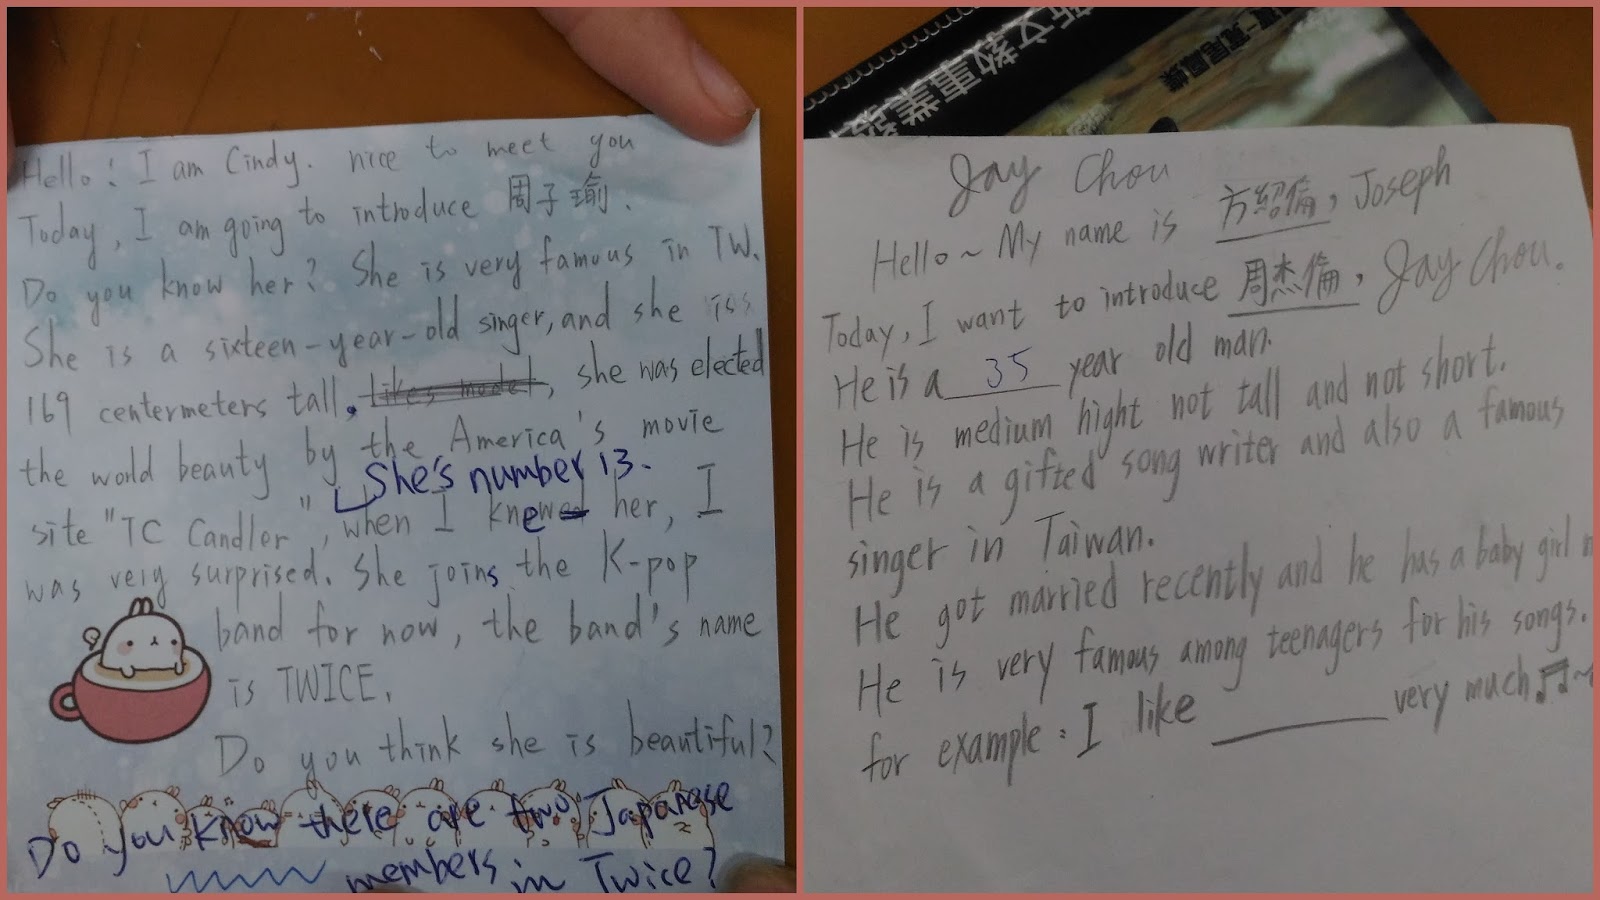 Hello! I am Cindy. nice to meet you
Today, I am going to introduce 周子瑜.
Do you know her? She is very famous in TW.
She is a sixteen-year-old singer, and she is
169 centermeters tall. likes model, she was elected
the world beauty by the America's movie
She's number 13.
site "TC Candler", when I knew her, I
was very surprised. She joins the K-pop
band for now, the band's name
is TWICE.
Do you think she is beautiful?
Do you know there are two Japanese
members in Twice?
新文教事業
Jay Chou
Hello~ My name is 方紹倫, Joseph
Today, I want to introduce 周杰倫, Jay Chou.
He is a 35 year old man.
He is medium hight not tall and not short.
He is a gifted song writer and also a famous
singer in Taiwan.
He got married recently and he has a baby girl
He is very famous among teenagers for his songs.
for example: I like ______ very much